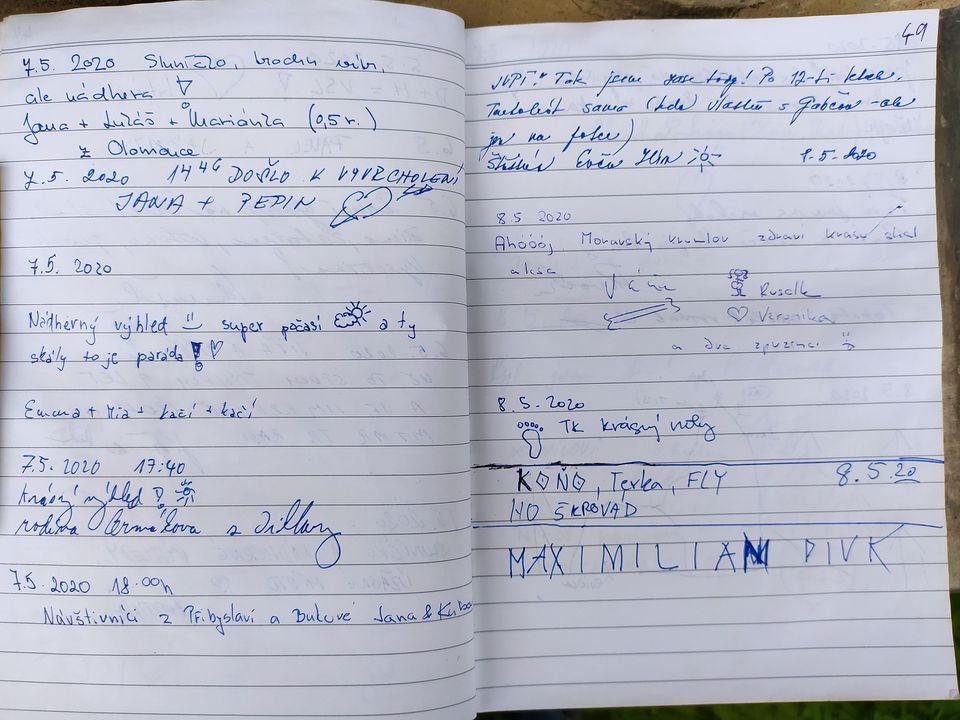 7.5. 2020 Sluníčko, trochu vítr,
ale nádhera
Jana + Lukáš + Mariánka (0,5 r.)
z Olomouce
7.5. 2020 14 46 DOŠLO K VYVRCHOLENÍ
JANA + PEPIN
7.5. 2020
Nádherný výhled super počasí a ty
skály to je paráda!
Emma + Mia + kačí + kačí
7.5. 2020 17:40
Krásný výhled!
rodina z
7.5. 2020 18.00h
Návštivníci z Přibyslavi a Bukové Jana & Kuba
49
Tak jsme zase tady! Po 12-ti letech.
sama (kdo s - ale
jen na fotce)
8.5.2020
8.5 2020
Ahóóój Moravský krumlov zdraví krásu skal
a lesa
Rusalk
Veronika
a dva
8.5.2020
TK krásný
KOŇO, Terka, FLY 8.5.20
HO ŠKROVAD
MAXIMILIAN DIVK